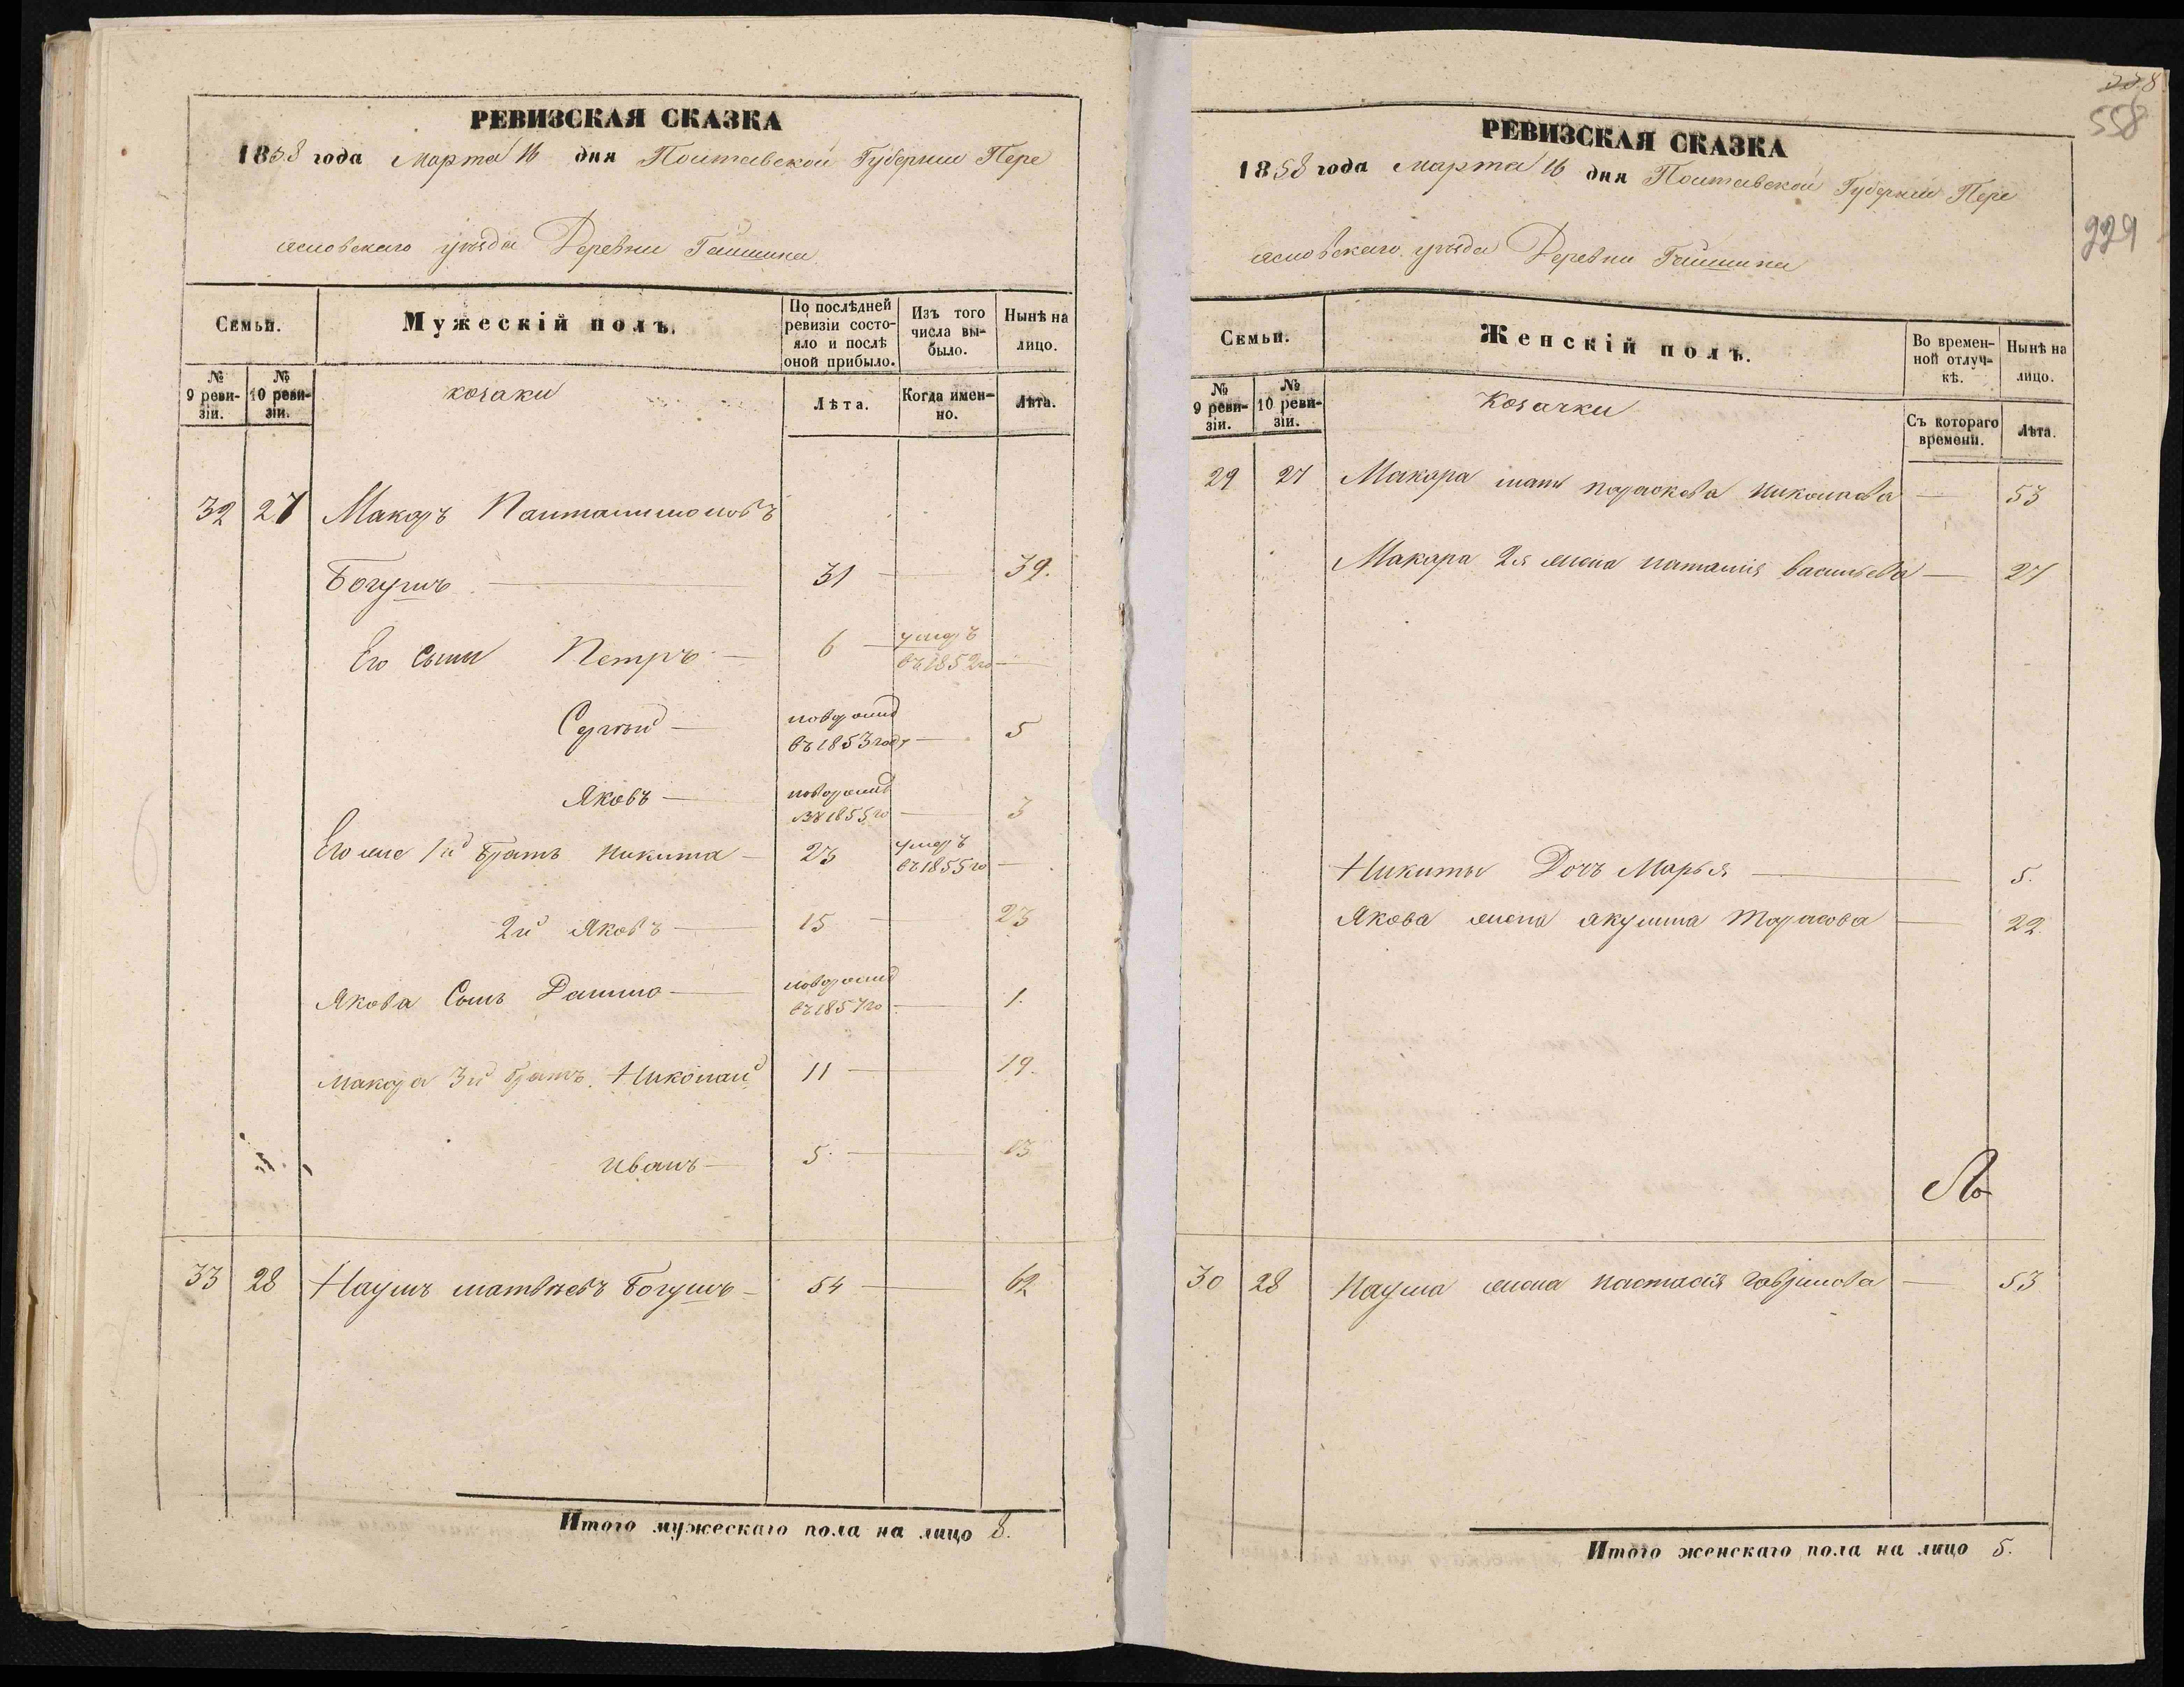 РЕВИЗСКАЯ СКАЗКА
1858 года Марта 16 дня Полтавской Губернии Пере
яславскаго уѣзда Деревни Гайшина
Семьи.
Мужескій полъ.
По послѣдней ревизіи состояло и послѣ оной прибыло.
Изъ того числа выбыло.
Нынѣ на лицо.
№ 9 ревизіи.
№ 10 ревизіи.
козаки
Лѣта.
Когда именно.
Лѣта.
32 27 Макаръ Панталимоновъ
Богушъ — 31 — 39.
Его Сыны Петръ — 6 — умеръ въ 1852 го —
Сергѣй — новорожд въ 1853 году — 5
Яковъ — новорожд въ 1855 го — 3
Его же 1й Братъ Никита — 23 умеръ въ 1855 го —
2й Яковъ — 15 — 23
Якова Сынъ Данило — новорожд въ 1857 го — 1.
Макара 3й братъ Николай 11 — 19.
Иванъ — 5 — 13
33 28 Наумъ Матвѣевъ Богушъ — 54 — 62
Итого мужескаго пола на лицо 8.
558
558
229
РЕВИЗСКАЯ СКАЗКА
1858 года Марта 16 дня Полтавской Губернии Пере
яславскаго уѣзда Деревни Гайшина
Семьи.
Женскій полъ.
Во временной отлучкѣ.
Нынѣ на лицо.
№ 9 ревизіи.
№ 10 ревизіи.
Козачки
Съ котораго времени.
Лѣта.
29 27 Макара мать Параскева Николаева — 53
Макара 2я жена Наталия Васильева — 27
Никиты Дочь Марья — 5.
Якова жена Акулина Тарасова — 22
30 28 Наума жена Настасия Гаврилова — 53
Итого женскаго пола на лицо 5.